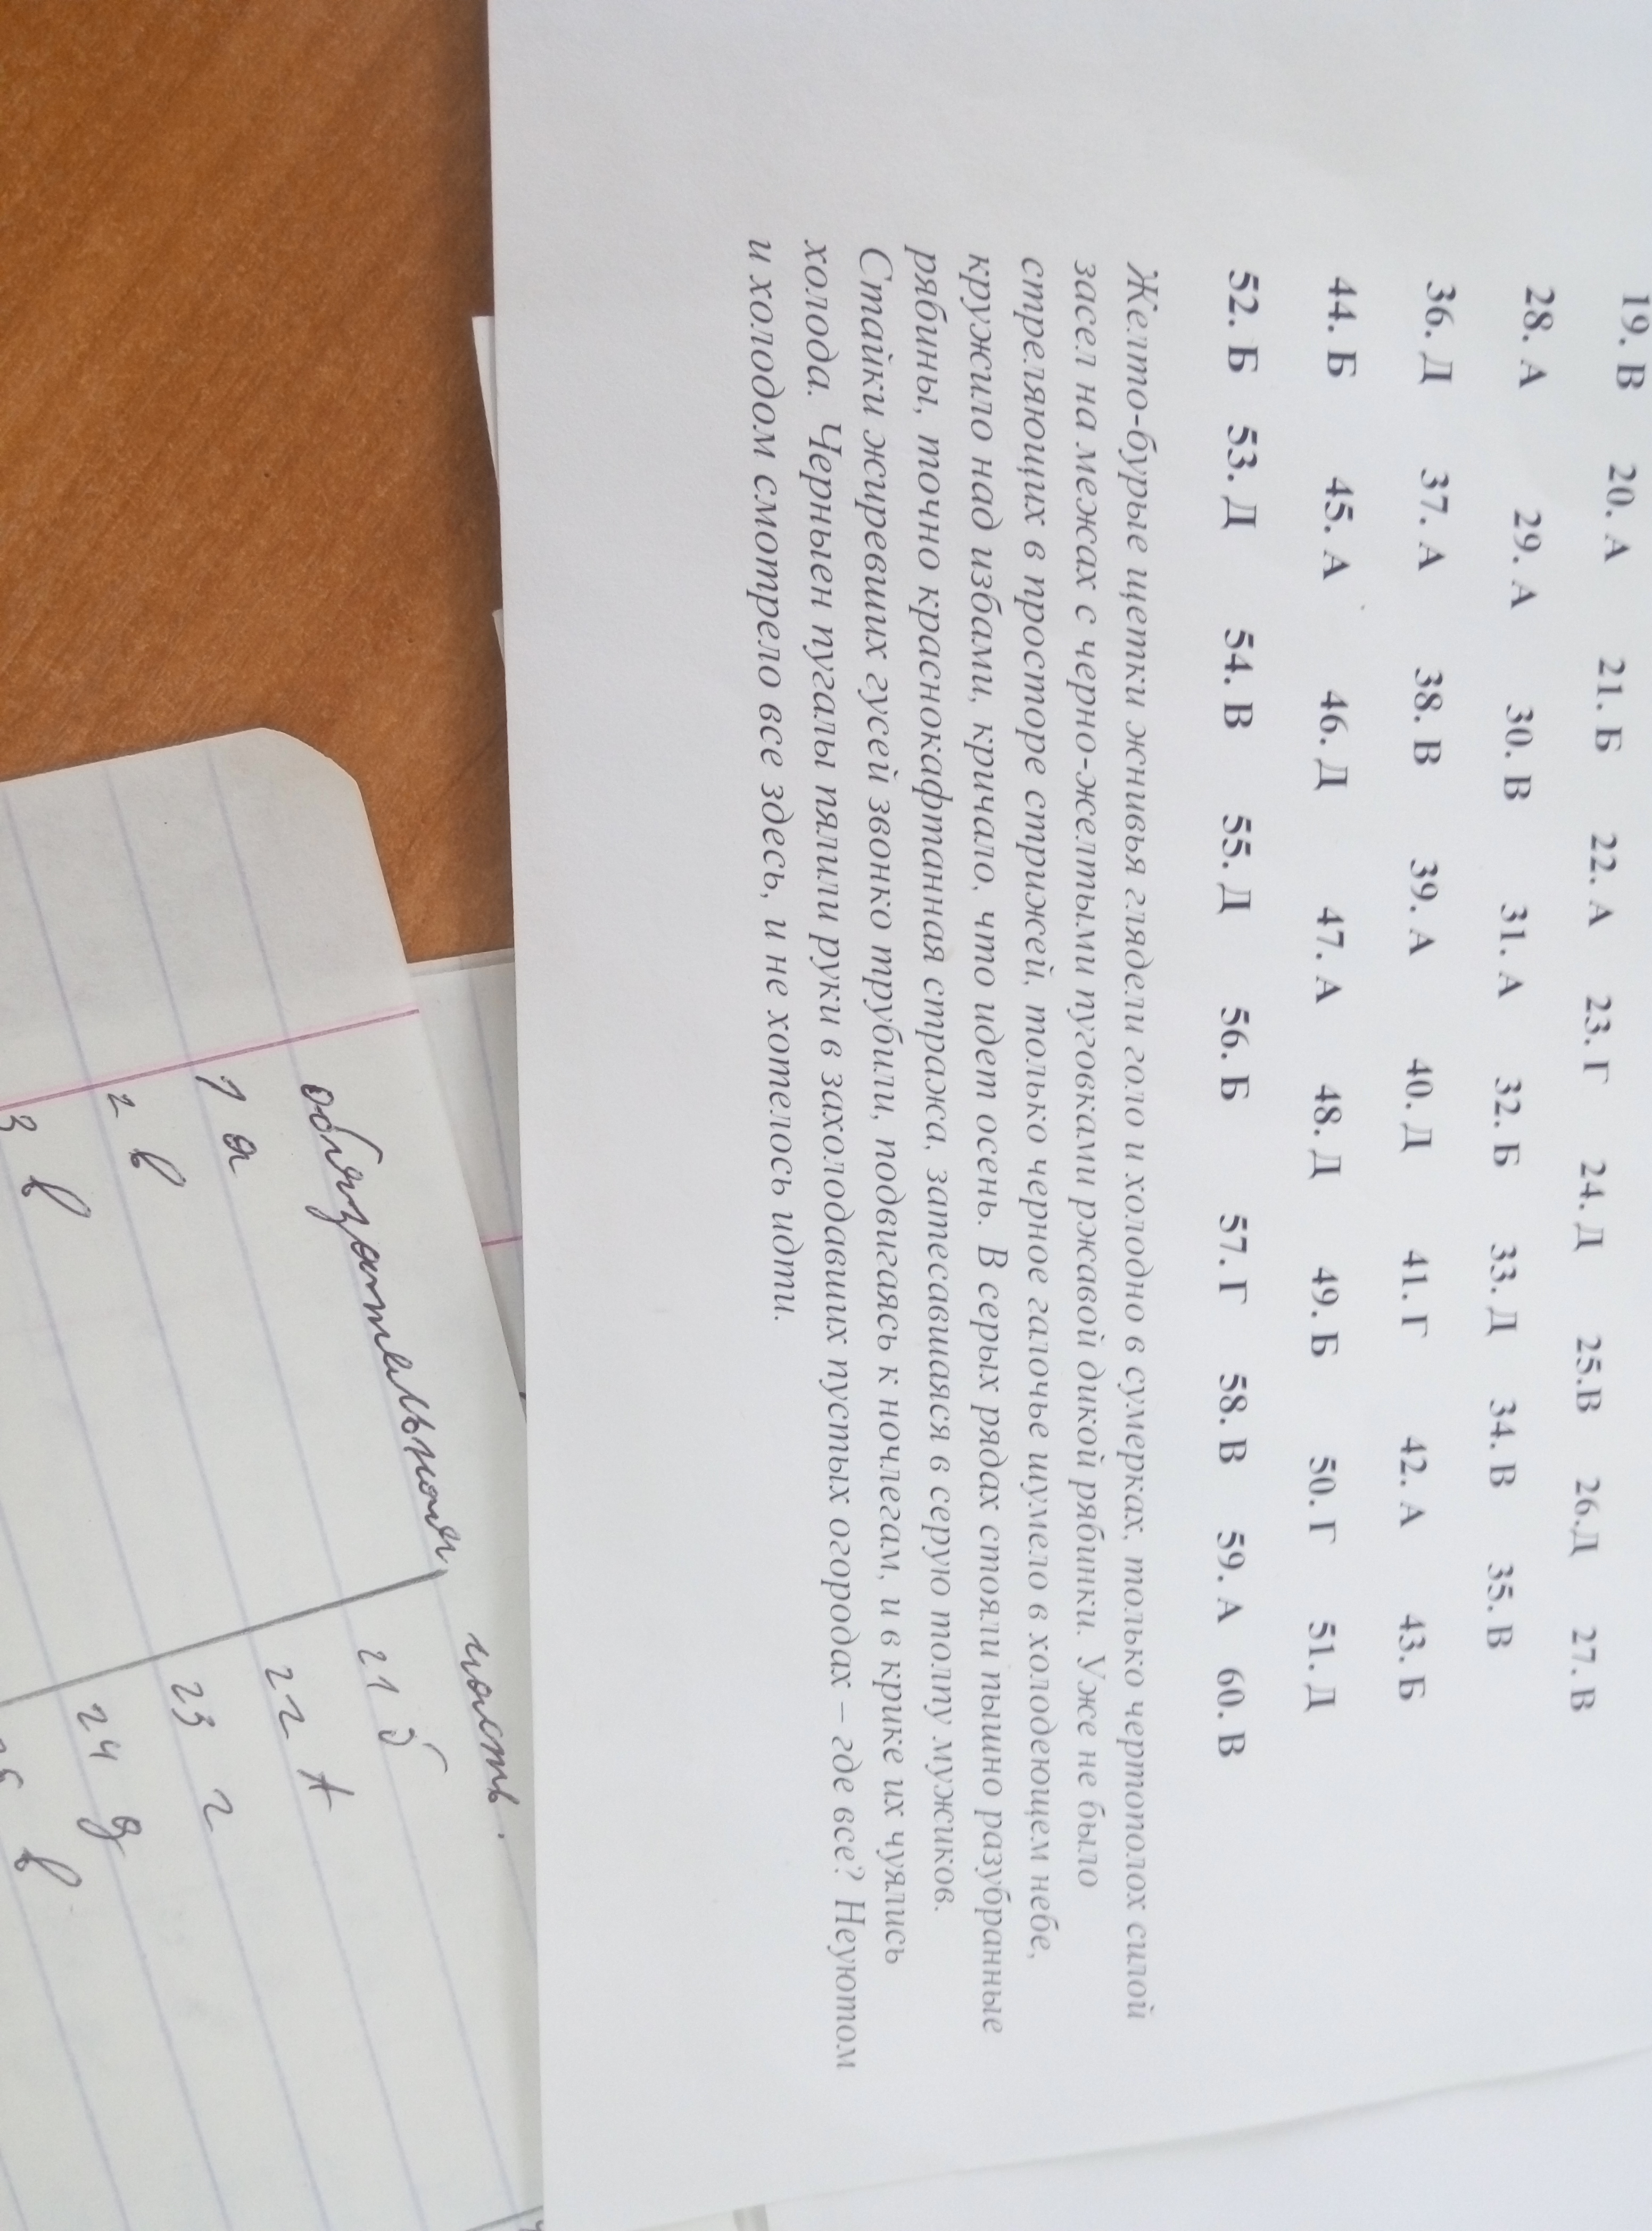 19. В 20. А 21. Б 22. А 23. Г 24. Д 25.В 26.Д 27. В
28. А 29. А 30. В 31. А 32. Б 33. Д 34. В 35. В
36. Д 37. А 38. В 39. А 40. Д 41. Г 42. А 43. Б
44. Б 45. А 46. Д 47. А 48. Д 49. Б 50. Г 51. Д
52. Б 53. Д 54. В 55. Д 56. Б 57. Г 58. В 59. А 60. В
Желто-бурые щетки жнивья глядели голо и холодно в сумерках, только чертополох силой
засел на межах с черно-желтыми пуговками ржавой дикой рябинки. Уже не было
стреляющих в просторе стрижей, только черное галочье шумело в холодеющем небе,
кружило над избами, кричало, что идет осень. В серых рядах стояли пышно разубранные
рябины, точно краснокафтанная стража, затесавшаяся в серую толпу мужиков.
Стайки жиревших гусей звонко трубили, подвигаясь к ночлегам, и в крике их чуялись
холода. Черныен пугалы пялили руки в захолодавших пустых огородах – где все? Неуютом
и холодом смотрело все здесь, и не хотелось идти.
обязательная часть.
1 а 21 б
2 в 22 А
3 в 23 г
24 д
в